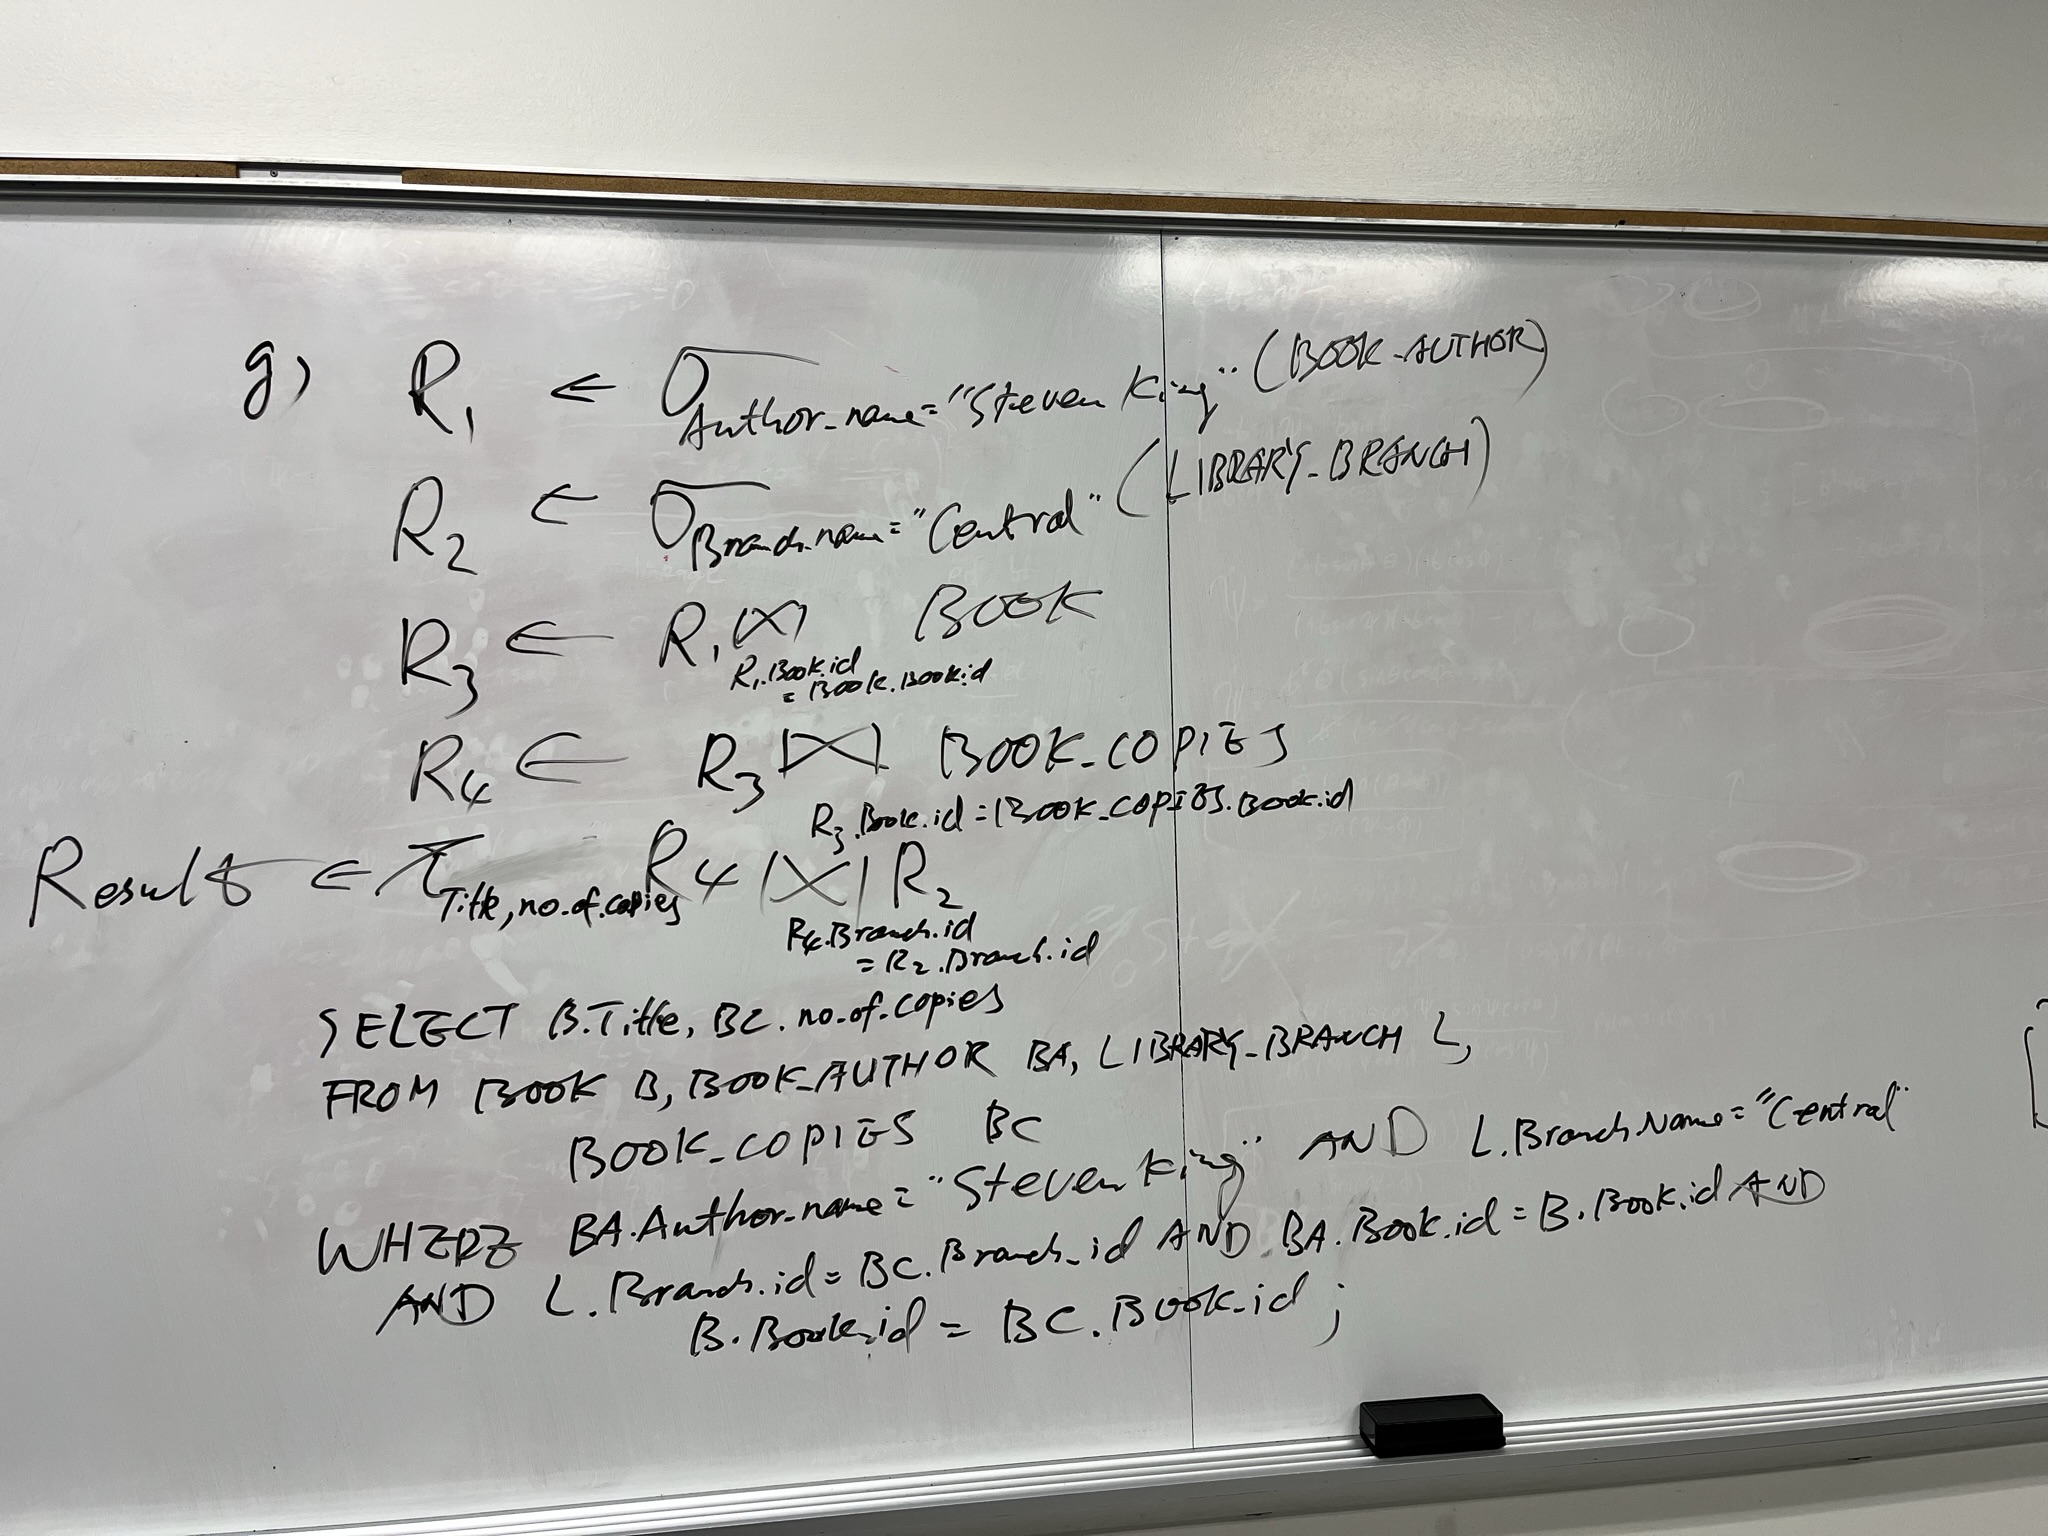 g) R₁ ← σ Author_name="Steven King" (BOOK_AUTHOR)
R₂ ← σ Branch_name="Central" (LIBRARY_BRANCH)
R₃ ← R₁ ⋈ BOOK
R₁.Book_id
= Book.Book_id
R₄ ← R₃ ⋈ BOOK_COPIES
R₃.Book_id = BOOK_COPIES.Book_id
Result ← π Title, no_of_copies R₄ ⋈ R₂
R₄.Branch_id
= R₂.Branch_id
SELECT B.Title, BC.no_of_copies
FROM BOOK B, BOOK_AUTHOR BA, LIBRARY_BRANCH L,
BOOK_COPIES BC
WHERE BA.Author_name="Steven King" AND L.Branch_Name="Central"
AND L.Branch_id = BC.Branch_id AND BA.Book_id = B.Book_id AND
B.Book_id = BC.Book_id;